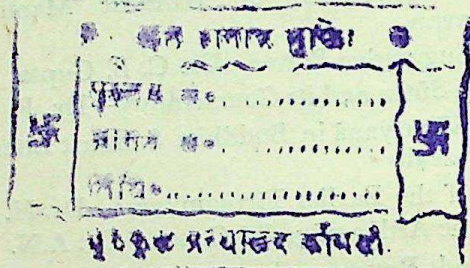 पुस्तक सं०................
आगत सं०................
तिथि......................
गुरुकुल ग्रन्थालय काँगड़ी.